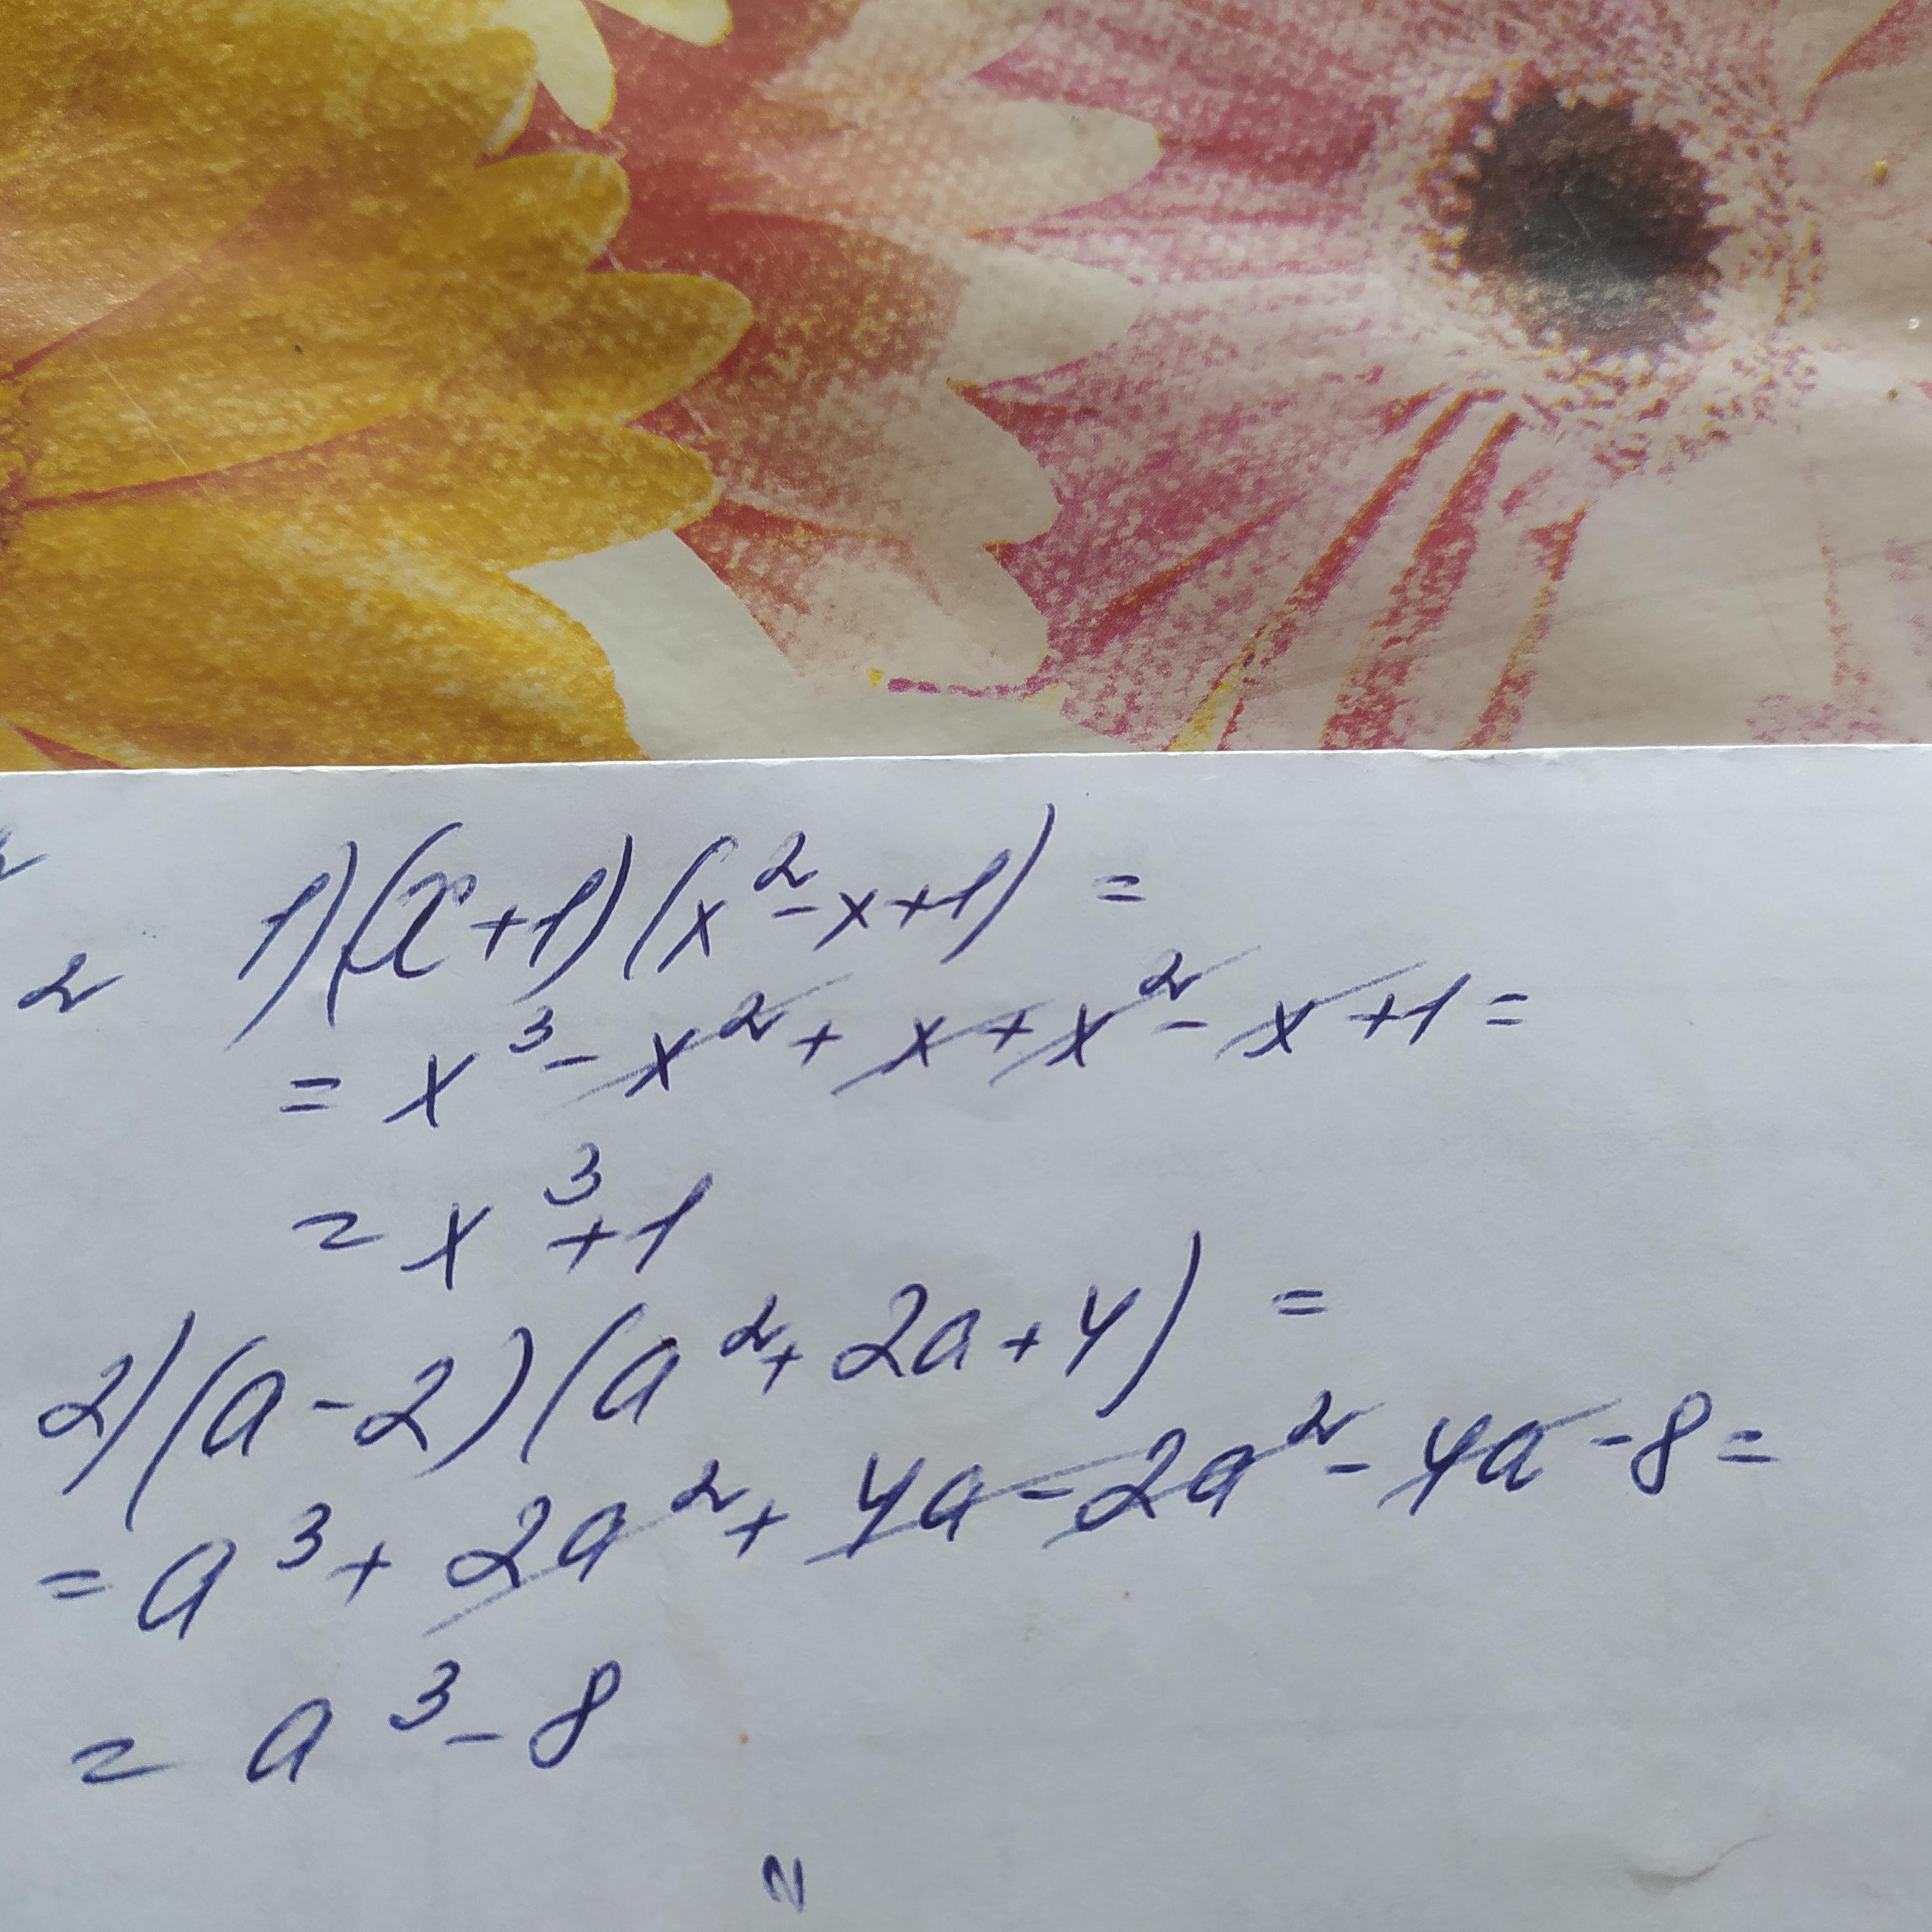 1) (x+1)(x²-x+1) =
2
= x³ - x² + x + x² - x + 1 =
= x³+1
2) (a-2)(a²+2a+4) =
= a³ + 2a² + 4a - 2a² - 4a - 8 =
= a³ - 8